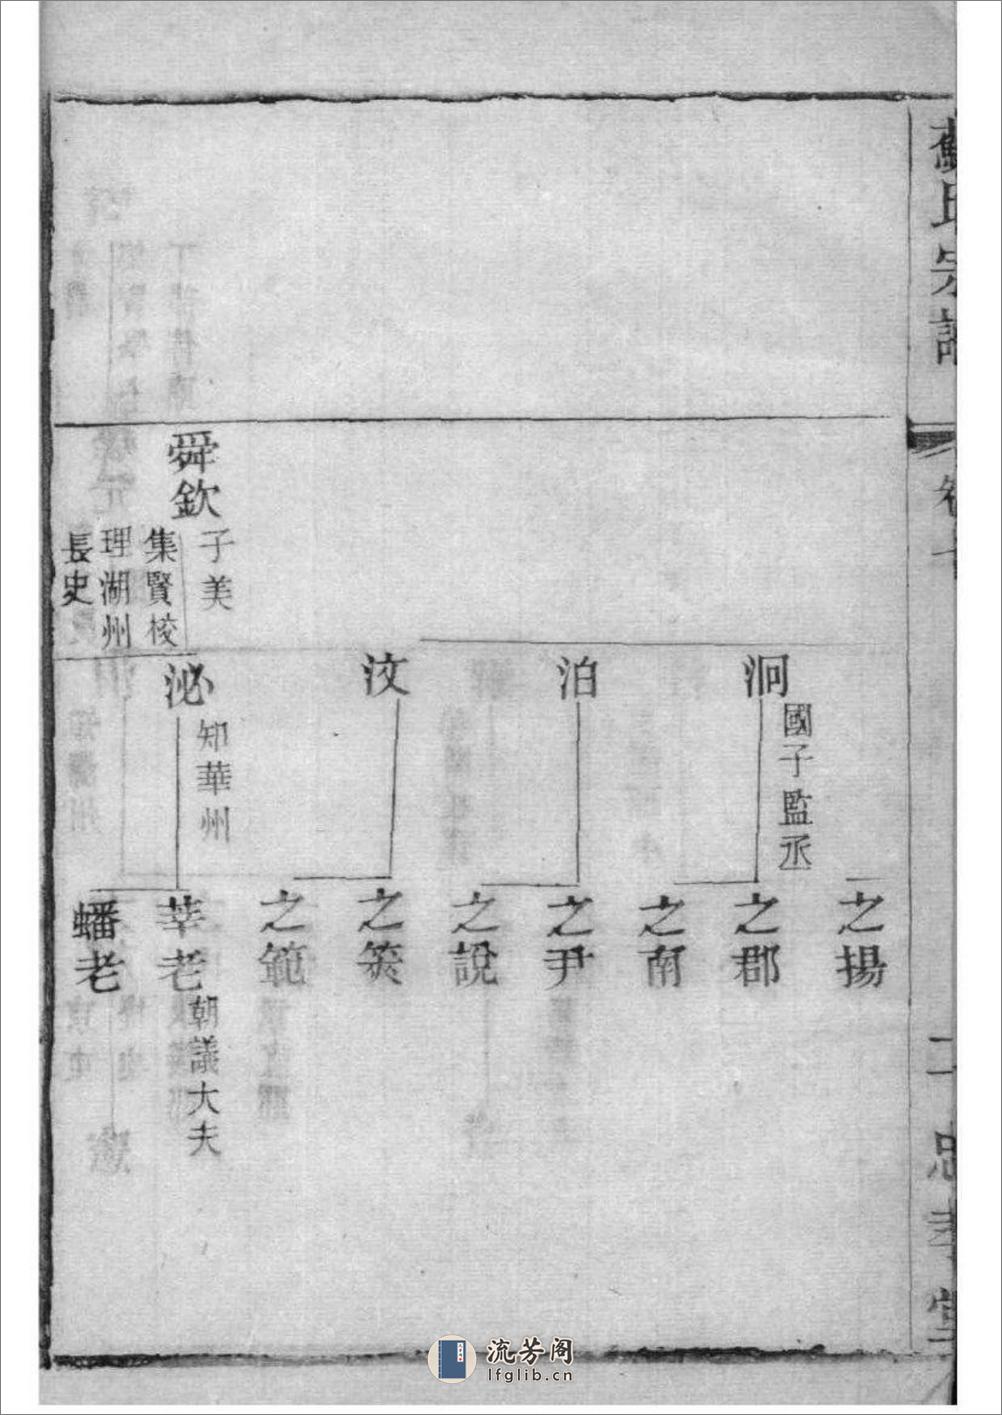 蘇氏宗譜
卷
二
忠孝堂
舜欽
子美
集賢校
理湖州
長史
泂
國子監丞
泊
汶
泌
知華州
之揚
之郡
之南
之尹
之說
之筴
之範
莘老
朝議大夫
蟠老
流芳阁
lfglib.cn